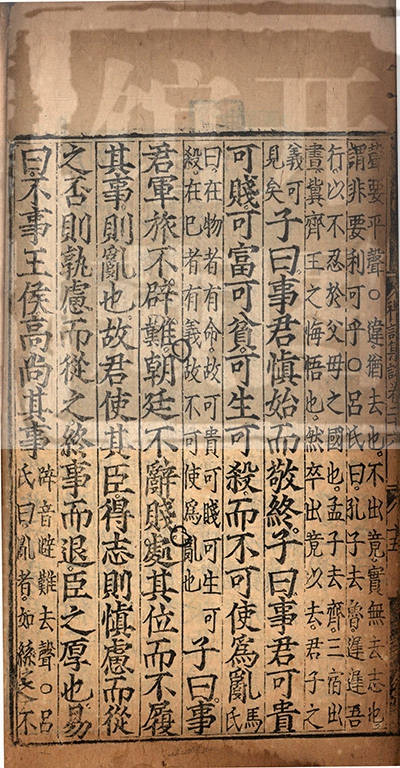 竟要平聲○違猶去也不出竟實無去志也
謂非要利可乎○呂氏曰孔子去魯遲遲吾
行以不忍於父母之國也孟子去齊三宿出
晝冀齊王之悔悟也然卒出竟以去君子之
義可
見矣
子曰事君慎始而敬終子曰事君可貴
可賤可富可貧可生可殺而不可使爲亂
馬氏
曰在物者有命故可貴可賤可生可
殺在己者有義故不可使爲亂也
子曰事
君軍旅不辟難朝廷不辭賤處其位而不履
其事則亂也故君使其臣得志則慎慮而從
之否則孰慮而從之終事而退臣之厚也易
曰不事王侯高尚其事
辟音避難去聲○呂
氏曰亂者如絲之不